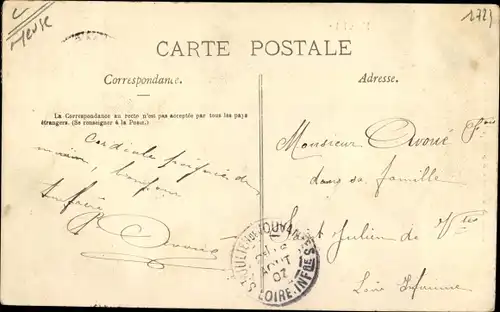 Meuse
CARTE POSTALE
Correspondance.
Adresse.
La Correspondance au recto n'est pas acceptée par tous les pays
étrangers. (Se renseigner à la Poste.)
Cordiale poignée de
main, bonjour
Monsieur Avoué Fçois
dans sa famille
Saint Julien de V
Loire Inférieure
AOUT
07
LOIRE-INFRE